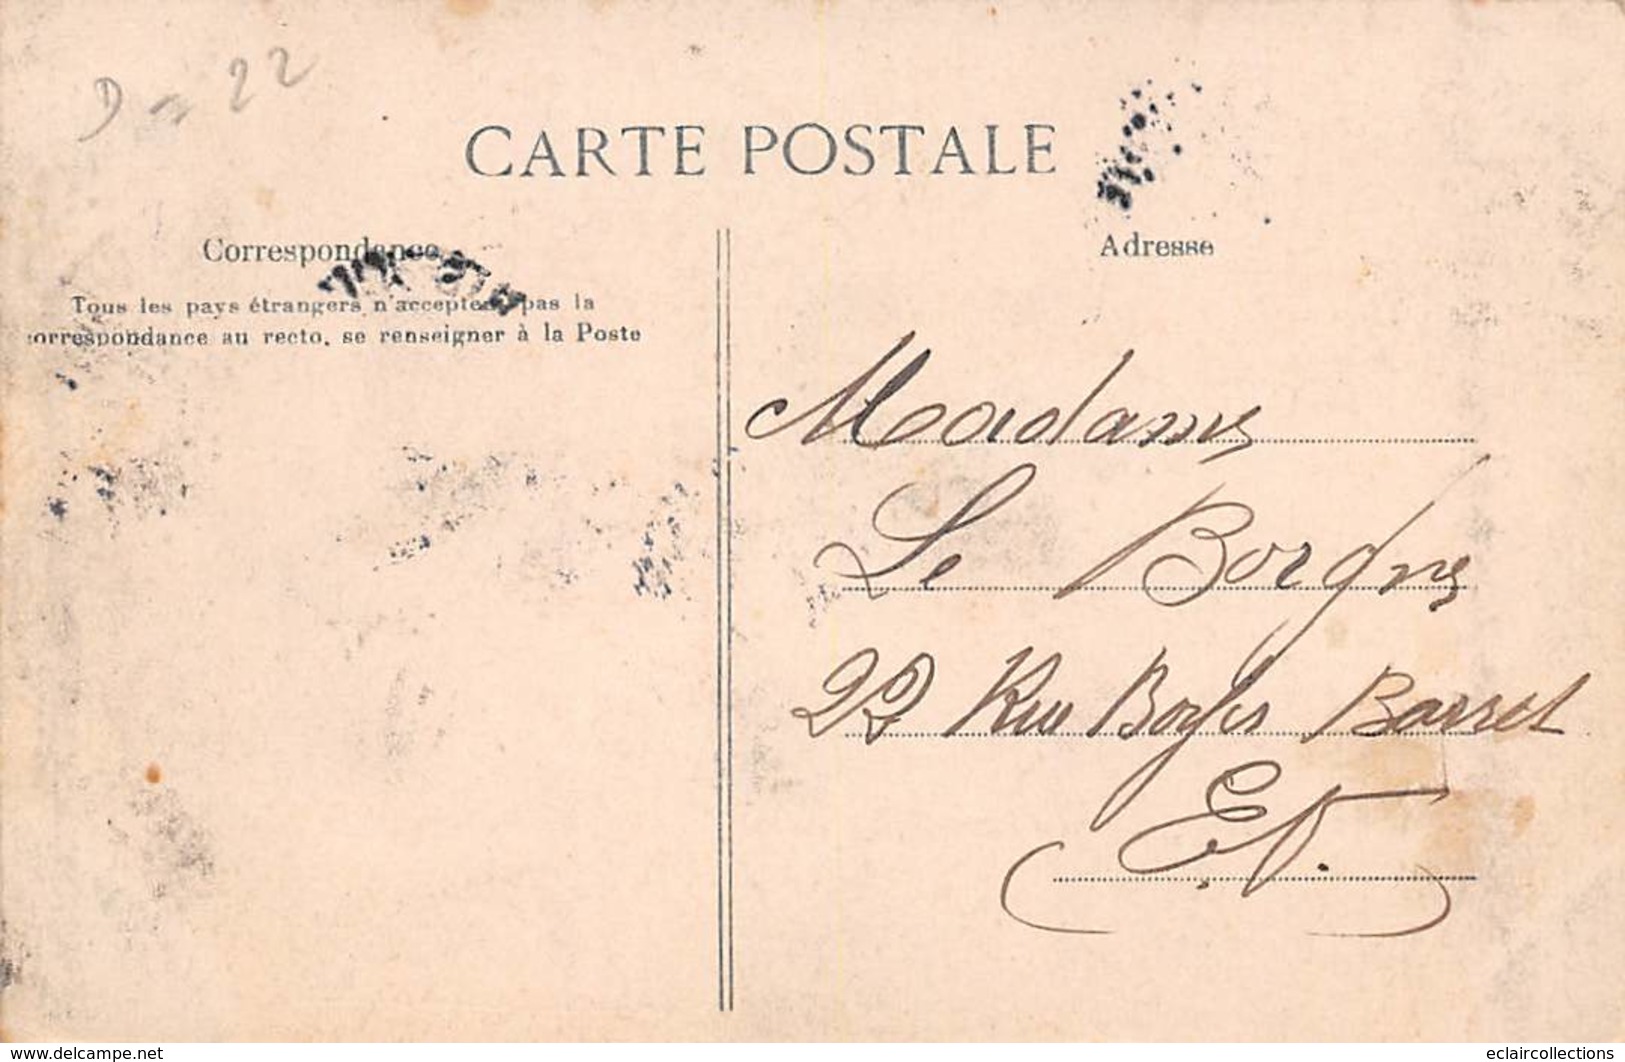 D = 22
CARTE POSTALE
Correspondance
Tous les pays étrangers n'acceptent pas la
correspondance au recto, se renseigner à la Poste
Adresse
Madame
Le Borgne
22 Rue Barret
E. V.
www.delcampe.net
eclaircollections